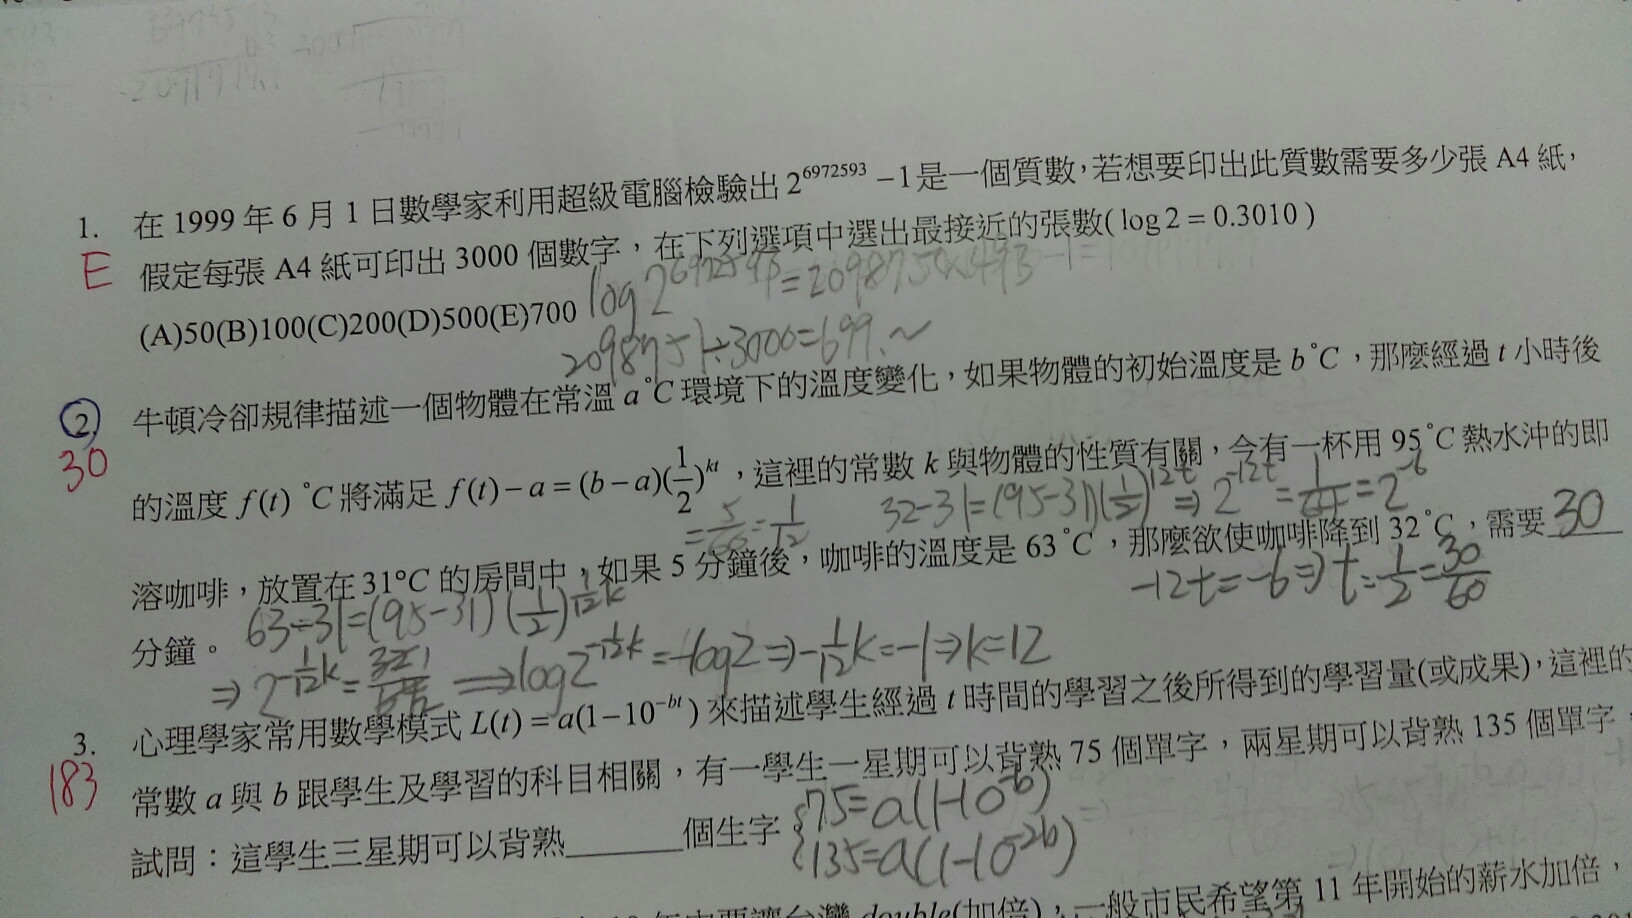 1. 在 1999 年 6 月 1 日數學家利用超級電腦檢驗出 2^6972593 −1是一個質數,若想要印出此質數需要多少張 A4 紙,
E 假定每張 A4 紙可印出 3000 個數字,在下列選項中選出最接近的張數( log 2 = 0.3010 )
(A)50(B)100(C)200(D)500(E)700
2098751÷3000=699.~
2. 牛頓冷卻規律描述一個物體在常溫 a°C 環境下的溫度變化,如果物體的初始溫度是 b°C,那麼經過 t 小時後
30
的溫度 f(t) °C 將滿足 f(t) − a = (b − a)(1/2)^kt,這裡的常數 k 與物體的性質有關,今有一杯用 95°C 熱水沖的即
32-31=(95-31)(1/2)^12t ⇒ 2^-12t = 1/64 = 2^-6
溶咖啡,放置在 31°C 的房間中,如果 5 分鐘後,咖啡的溫度是 63°C,那麼欲使咖啡降到 32°C,需要 30
-12t=-6⇒t=1/2=30/60
分鐘。 63-31=(95-31)(1/2)^1/12k
⇒log2^-1/12k=-log2⇒-1/12k=-1⇒k=12
3. 心理學家常用數學模式 L(t) = a(1−10^−bt) 來描述學生經過 t 時間的學習之後所得到的學習量(或成果),這裡的
183 常數 a 與 b 跟學生及學習的科目相關,有一學生一星期可以背熟 75 個單字,兩星期可以背熟 135 個單字,
75=a(1-10^-b)
試問:這學生三星期可以背熟______個生字
135=a(1-10^-2b)
double(加倍),一般市民希望第 11 年開始的薪水加倍,